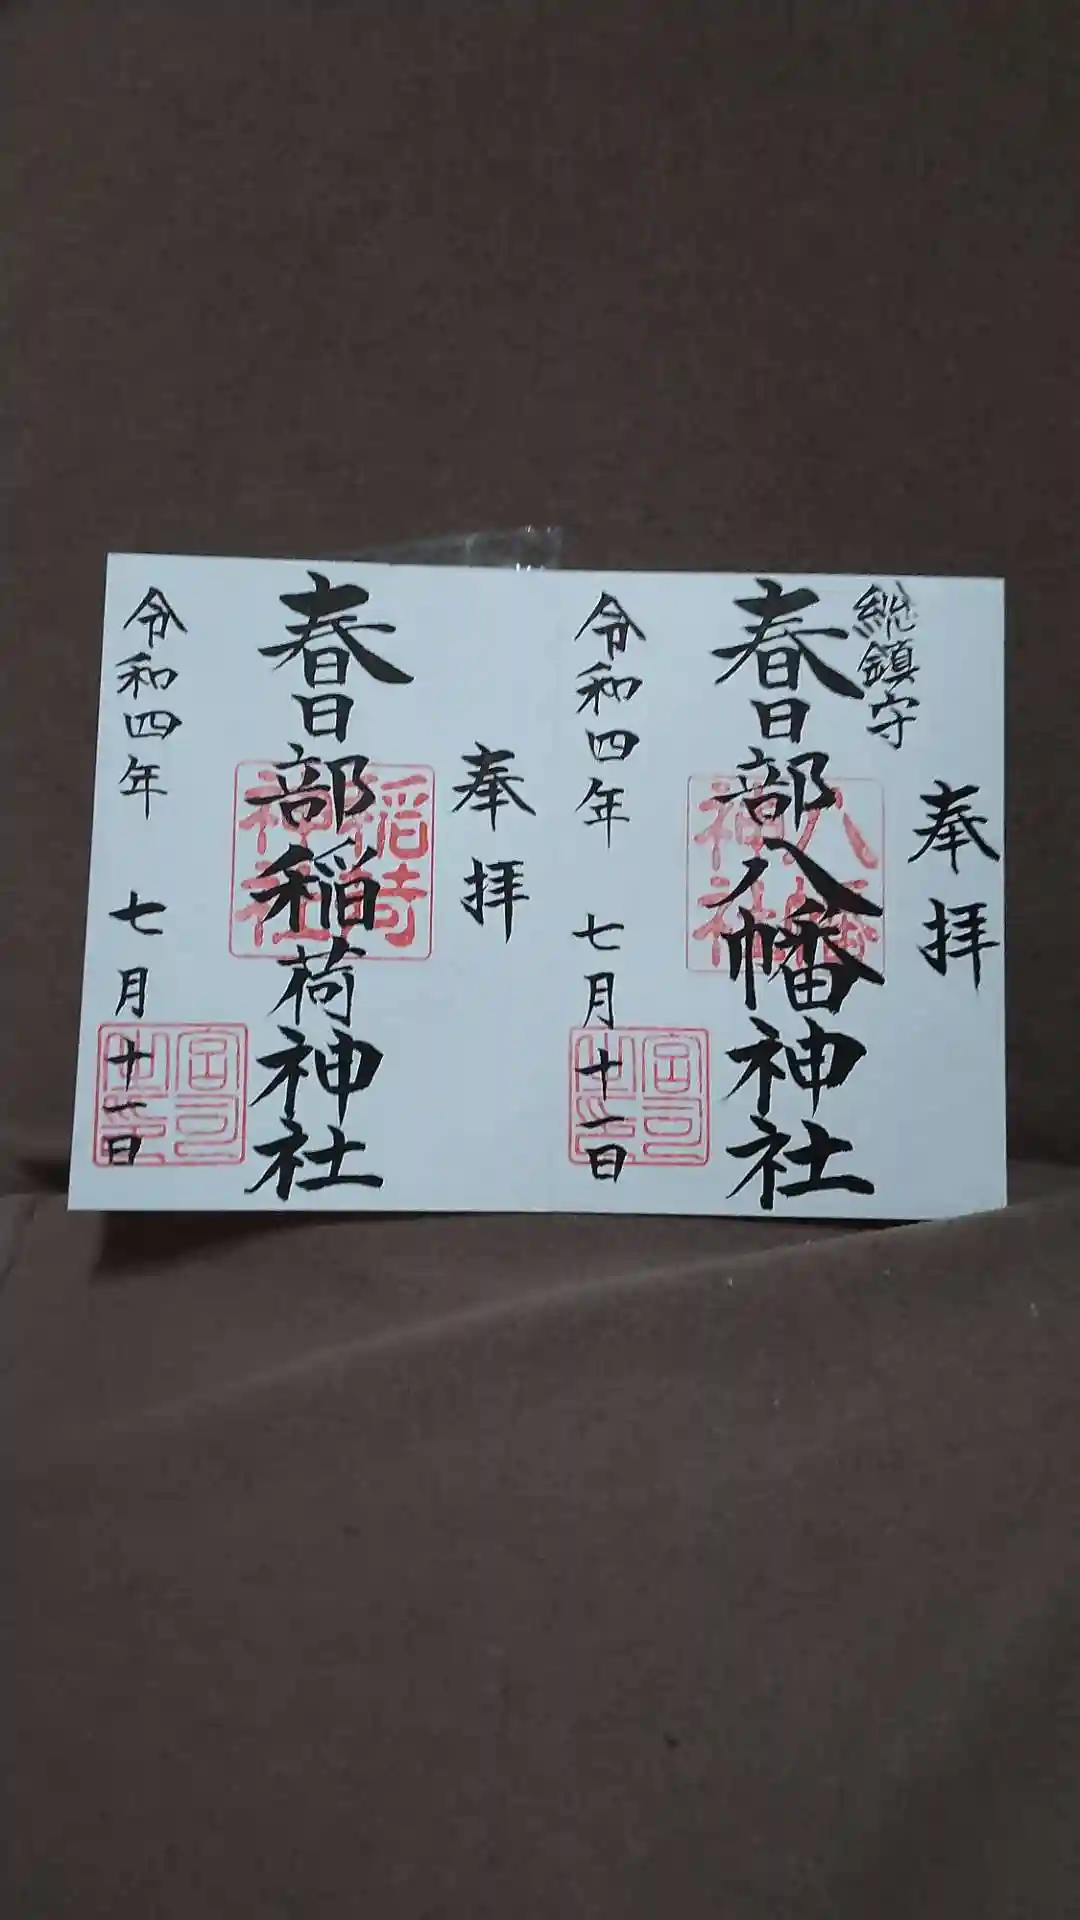 奉拝
総鎮守
春日部八幡神社
八幡神社
令和四年 七月十一日
宮司之印
奉拝
春日部稲荷神社
稲荷神社
令和四年 七月十一日
宮司之印